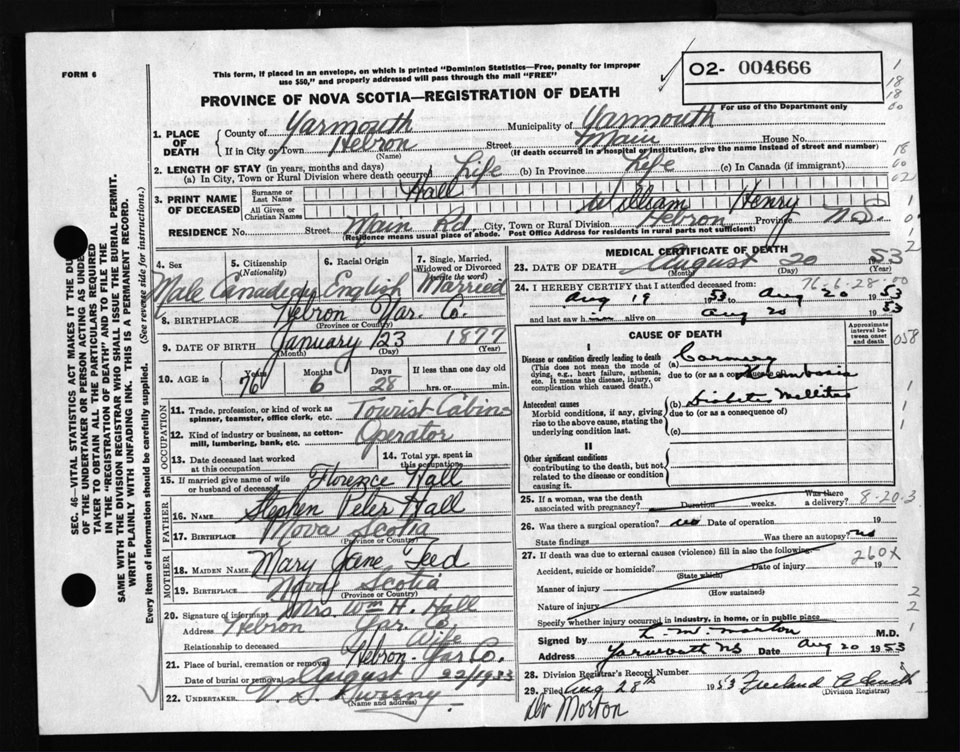 FORM 6
This form, if placed in an envelope, on which is printed "Dominion Statistics—Free, penalty for improper
use $50," and properly addressed will pass through the mail "FREE"
02- 004666
For use of the Department only
PROVINCE OF NOVA SCOTIA—REGISTRATION OF DEATH
SEC. 46—VITAL STATISTICS ACT MAKES IT THE DU
OF THE UNDERTAKER OR PERSON ACTING AS UNDE
TAKER TO OBTAIN ALL THE PARTICULARS REQUIRED
IN THE "REGISTRATION OF DEATH" AND TO FILE THE
SAME WITH THE DIVISION REGISTRAR WHO SHALL ISSUE THE BURIAL PERMIT.
WRITE PLAINLY WITH UNFADING INK. THIS IS A PERMANENT RECORD.
Every item of information should be carefully supplied. (See reverse side for instructions.)
1. PLACE OF DEATH
County of Yarmouth Municipality of Yarmouth
If in City or Town Hebron Street Main House No.
(Name) (If death occurred in a hospital or institution, give the name instead of street and number)
2. LENGTH OF STAY (in years, months and days)
(a) In City, Town or Rural Division where death occurred Life (b) In Province Life (c) In Canada (if immigrant)
3. PRINT NAME OF DECEASED
Surname or Last Name Hall
All Given or Christian Names William Henry
RESIDENCE No. Street Main Rd. City, Town or Rural Division Hebron Province N.S.
(Residence means usual place of abode. Post Office Address for residents in rural parts not sufficient)
4. Sex Male
5. Citizenship (Nationality) Canadian
6. Racial Origin English
7. Single, Married, Widowed or Divorced (write the word) Married
8. BIRTHPLACE Hebron Yar. Co.
(Province or Country)
9. DATE OF BIRTH January 23 1877
(Month) (Day) (Year)
10. AGE in Years 76 Months 6 Days 28 If less than one day old
hrs. or min.
OCCUPATION
11. Trade, profession, or kind of work as spinner, teamster, office clerk, etc. Tourist Cabins
12. Kind of industry or business, as cotton-mill, lumbering, bank, etc. Operator
13. Date deceased last worked at this occupation
14. Total yrs. spent in this occupation
15. If married give name of wife or husband of deceased Florence Hall
FATHER
16. NAME Stephen Peter Hall
17. BIRTHPLACE Nova Scotia
(Province or Country)
MOTHER
18. MAIDEN NAME Mary Jane Teed
19. BIRTHPLACE Nova Scotia
(Province or Country)
20. Signature of informant Mrs. Wm H. Hall
Address Hebron Yar. Co
Relationship to deceased Wife
21. Place of burial, cremation or removal Hebron Yar Co.
Date of burial or removal August 22/1953
22. UNDERTAKER V. S. Sweeny
(Name and address)
MEDICAL CERTIFICATE OF DEATH
23. DATE OF DEATH August 20 1953
(Month) (Day) (Year)
76-6-28-00
24. I HEREBY CERTIFY that I attended deceased from:
Aug 19 1953 to Aug 20 1953
and last saw h alive on Aug 20 1953
CAUSE OF DEATH
Approximate interval between onset and death
I
Disease or condition directly leading to death
(This does not mean the mode of dying, e.g., heart failure, asthenia, etc. It means the disease, injury, or complication which caused death.)
(a) Coronary
due to (or as a consequence of)
Antecedent causes
Morbid conditions, if any, giving rise to the above cause, stating the underlying condition last.
(b) Diabetes Mellitus
due to (or as a consequence of)
(c)
II
Other significant conditions
contributing to the death, but not related to the disease or condition causing it.
058
25. If a woman, was the death associated with pregnancy? Duration weeks. Was there a delivery?
8-20-3
26. Was there a surgical operation? no Date of operation 19
State findings Was there an autopsy? no
27. If death was due to external causes (violence) fill in also the following:
260X
Accident, suicide or homicide? Date of injury 19
(State which)
Manner of injury
(How sustained)
Nature of injury
Specify whether injury occurred in industry, in home, or in public place
Signed by L. M. Morton M.D.
Address Yarmouth NS Date Aug 20 1953
28. Division Registrar's Record Number
29. Filed Aug 28th 1953 Freeland
(Division Registrar)
Dr Morton